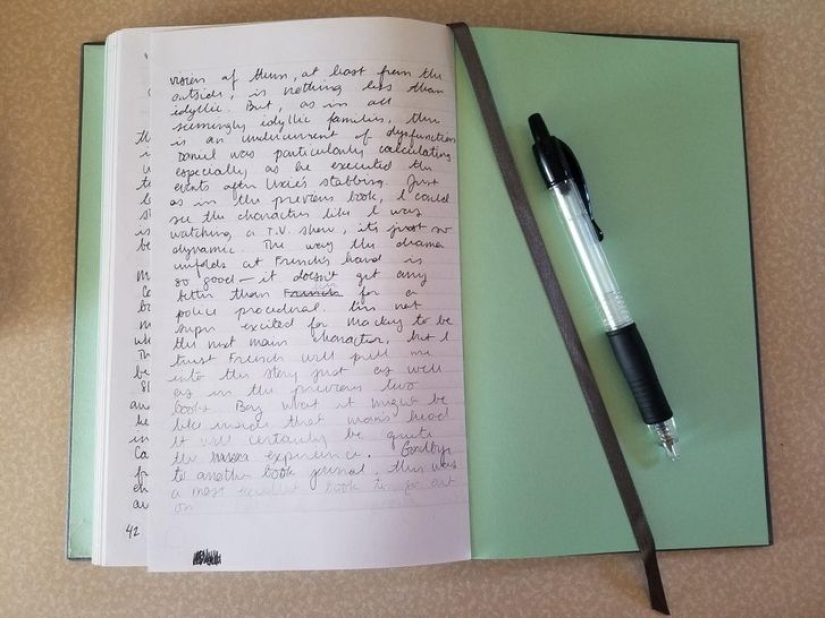 th
i
u
te
le
st
is
be
M
Co
bo
m
wh
Th
be
SI
and
he
in
Co
fr
ch
au
42
vision of them, at least from the
outside, is nothing less than
idyllic. But, as in all
seemingly idyllic families, there
is an undercurrent of dysfunction
Daniel was particularly calculating
especially as he executed the
events after Lexie's stabbing. Just
as in the previous book, I could
see the characters like I was
watching a T.V. show, it's just so
dynamic. The way the drama
unfolds at French's hand is
so good — it doesn't get any
better than French for a
police procedural. I'm not
super excited for Mackey to be
the next main character, but I
trust French will pull me
into the story just as well
as in the previous two
books. Boy what it might be
like inside that man's head
It will certainly be quite
the experience. Goodbye
to another book journal, this was
a most excellent book to go out
on